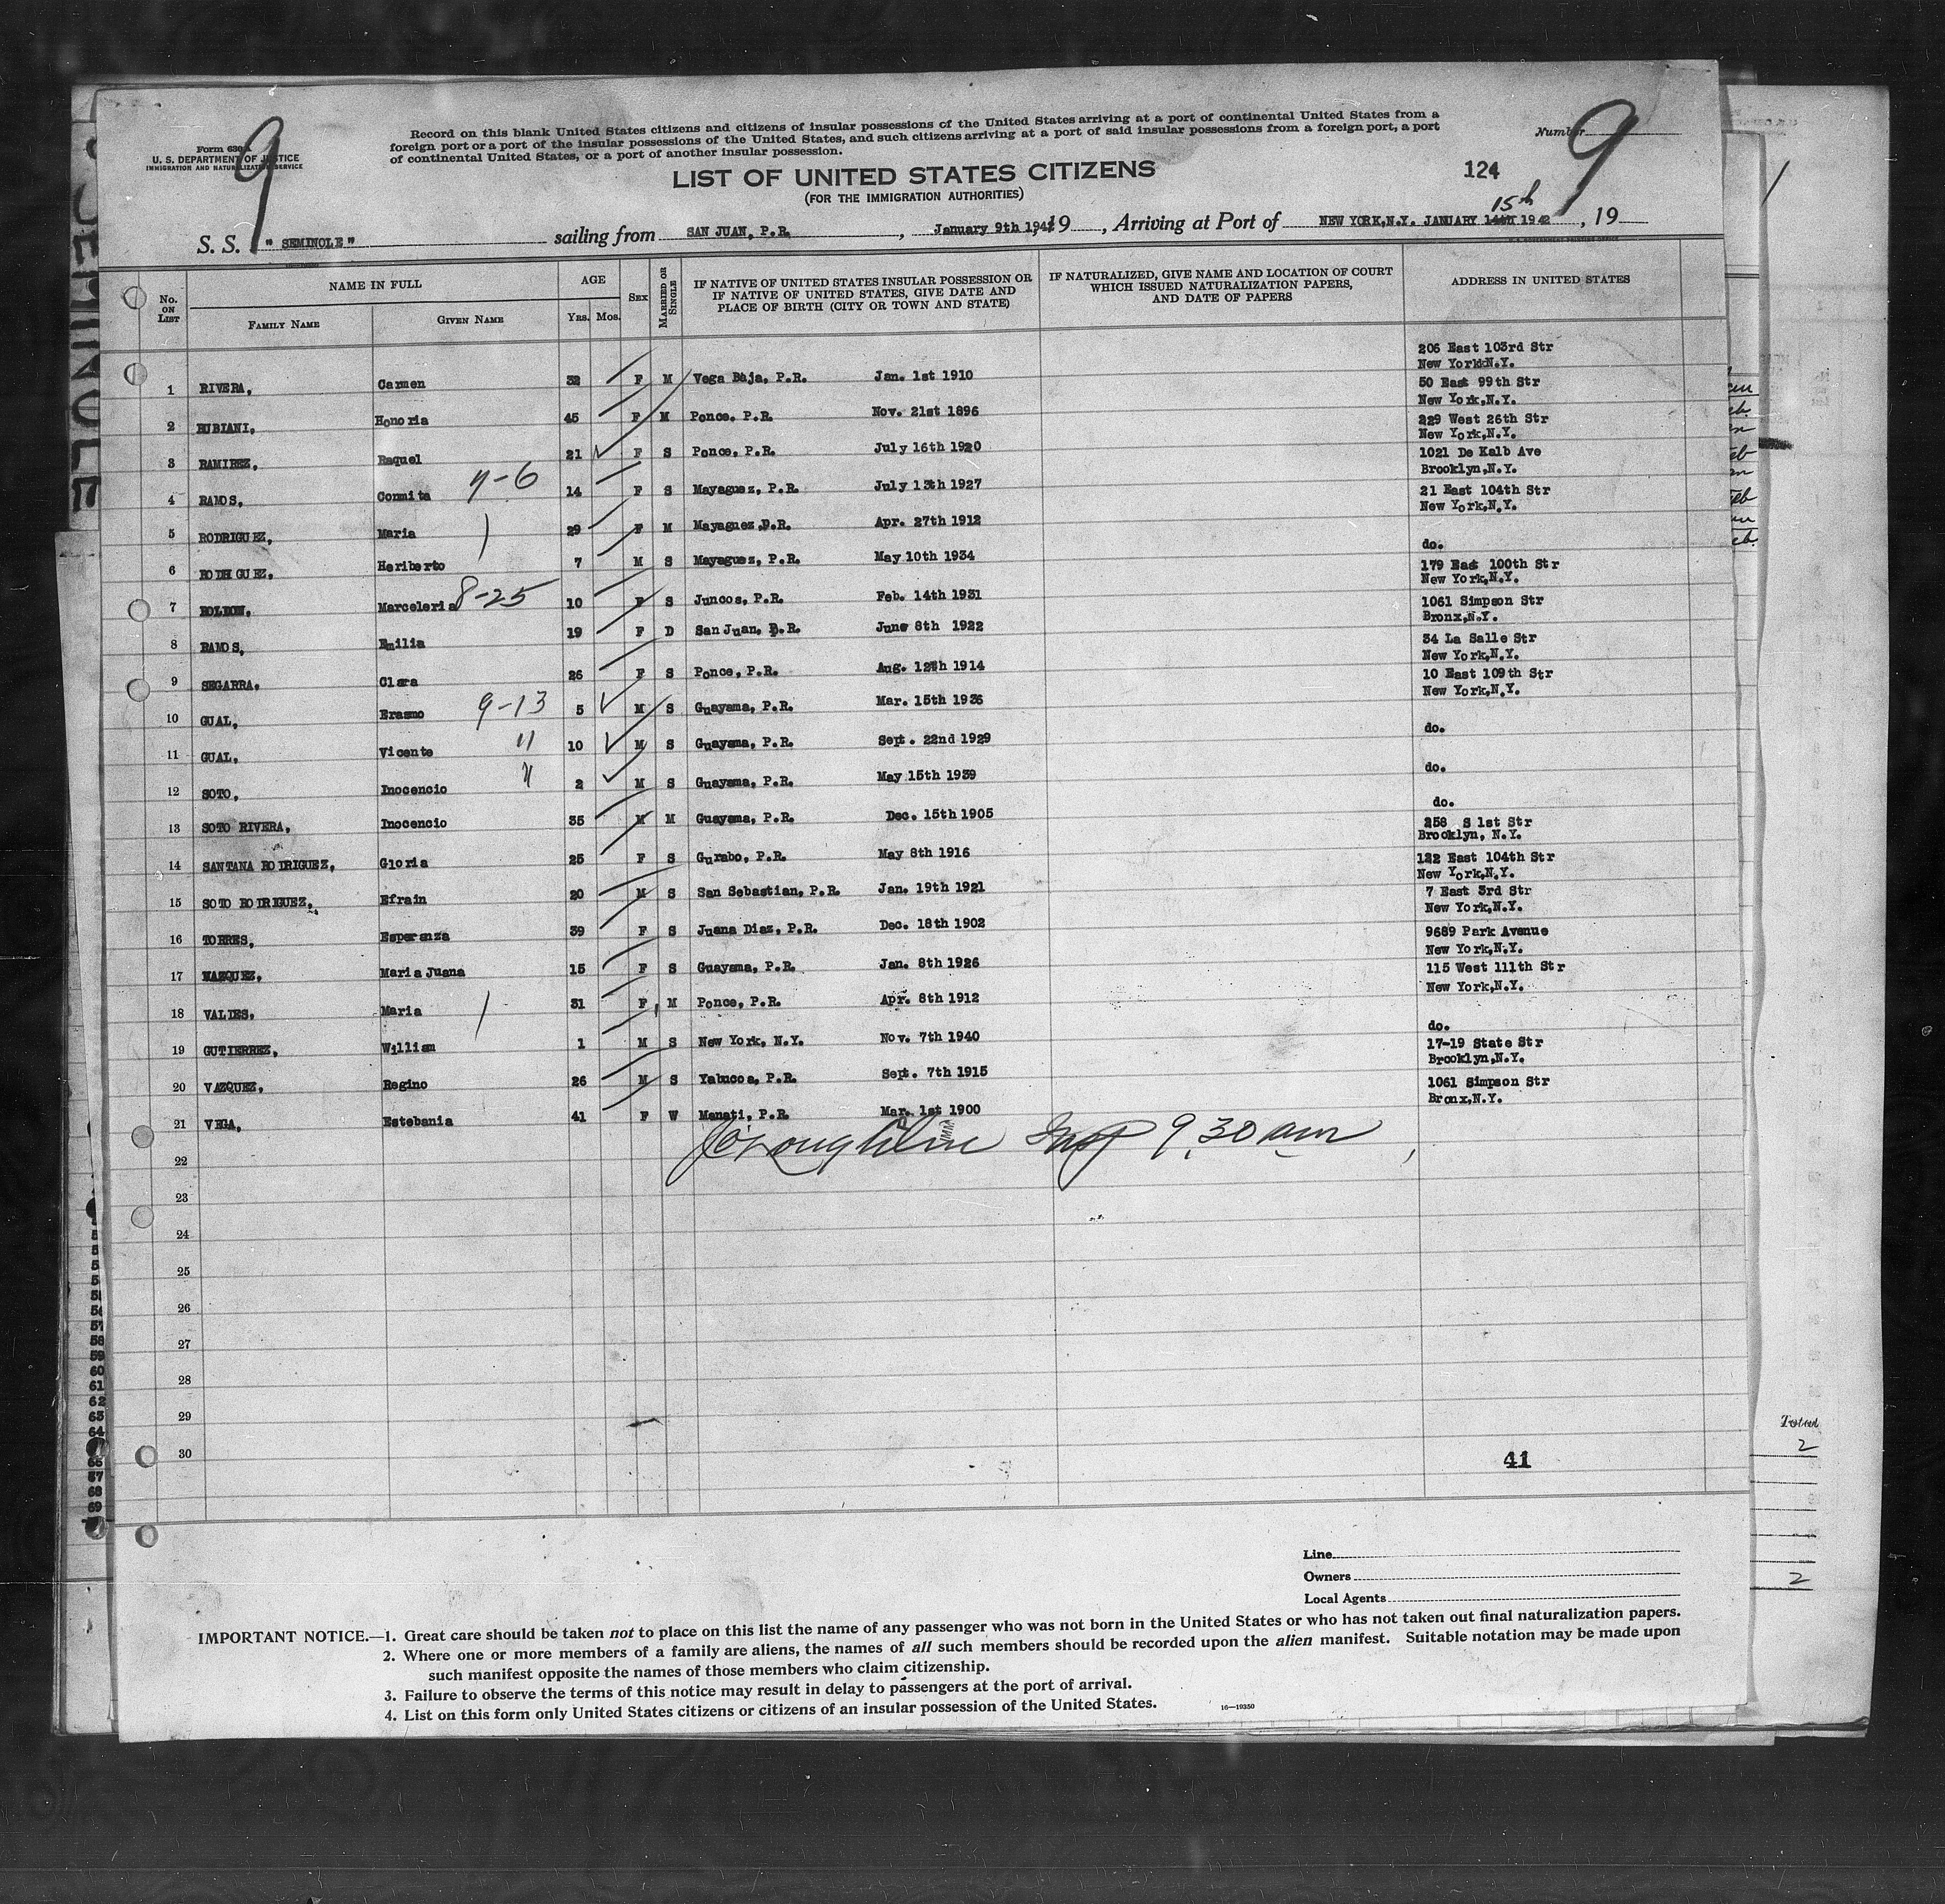 9
9
Form 630
U. S. DEPARTMENT OF JUSTICE
IMMIGRATION AND NATURALIZATION SERVICE
Record on this blank United States citizens and citizens of insular possessions of the United States arriving at a port of continental United States from a
foreign port or a port of the insular possessions of the United States, and such citizens arriving at a port of said insular possessions from a foreign port, a port
of continental United States, or a port of another insular possession.
Number
LIST OF UNITED STATES CITIZENS
(FOR THE IMMIGRATION AUTHORITIES)
124
15th
S. S. " SEMINOLE " sailing from SAN JUAN, P.R. , January 9th 1942 19 , Arriving at Port of NEW YORK,N.Y. JANUARY 14th 1942 , 19
No. ON LIST
NAME IN FULL
FAMILY NAME
GIVEN NAME
AGE
YRS. MOS.
SEX
MARRIED OR SINGLE
IF NATIVE OF UNITED STATES INSULAR POSSESSION OR
IF NATIVE OF UNITED STATES, GIVE DATE AND
PLACE OF BIRTH (CITY OR TOWN AND STATE)
IF NATURALIZED, GIVE NAME AND LOCATION OF COURT
WHICH ISSUED NATURALIZATION PAPERS,
AND DATE OF PAPERS
ADDRESS IN UNITED STATES
1 RIVERA, Carmen 32 F M Vega Baja, P.R. Jan. 1st 1910 206 East 103rd Str
New York N.Y.
2 RUBIANI, Honoria 45 F M Ponce, P.R. Nov. 21st 1896 50 East 99th Str
New York,N.Y.
3 RAMIREZ, Raquel 21 F S Ponce, P.R. July 16th 1920 229 West 26th Str
New York,N.Y.
4 RAMOS, Conmita 7-6 14 F S Mayaguez, P.R. July 13th 1927 1021 De Kalb Ave
Brooklyn,N.Y.
5 RODRIGUEZ, Maria 29 F M Mayaguez,P.R. Apr. 27th 1912 21 East 104th Str
New York,N.Y.
6 RODRIGUEZ, Heriberto 7 M S Mayaguez, P.R. May 10th 1934 do.
7 ROLDON, Marceleria 8-25 10 F S Juncos, P.R. Feb. 14th 1931 179 East 100th Str
New York,N.Y.
8 RAMOS, Emilia 19 F D San Juan, P.R. June 8th 1922 1061 Simpson Str
Bronx,N.Y.
9 SEGARRA, Clara 26 F S Ponce, P.R. Aug. 12th 1914 34 La Salle Str
New York,N.Y.
10 GUAL, Erasmo 9-13 5 M S Guayama, P.R. Mar. 15th 1936 10 East 109th Str
New York,N.Y.
11 GUAL, Vicente " 10 M S Guayama, P.R. Sept. 22nd 1929 do.
12 SOTO, Inocencio " 2 M S Guayama, P.R. May 15th 1939 do.
13 SOTO RIVERA, Inocencio 35 M M Guayama, P.R. Dec. 15th 1905 do.
14 SANTANA RODRIGUEZ, Gloria 25 F S Gurabo, P.R. May 8th 1916 258 S 1st Str
Brooklyn, N.Y.
15 SOTO RODRIGUEZ, Efrain 20 M S San Sebastian, P.R. Jan. 19th 1921 122 East 104th Str
New York,N.Y.
16 TORRES, Esperanza 39 F S Juana Diaz, P.R. Dec. 18th 1902 7 East 3rd Str
New York,N.Y.
17 VAZQUEZ, Maria Juana 15 F S Guayama, P.R. Jan. 8th 1926 9689 Park Avenue
New York,N.Y.
18 VALDES, Maria 31 F M Ponce, P.R. Apr. 8th 1912 115 West 111th Str
New York,N.Y.
19 GUTIERREZ, William 1 M S New York, N.Y. Nov. 7th 1940 do.
20 VAZQUEZ, Regino 26 M S Yabucoa, P.R. Sept. 7th 1915 17-19 State Str
Brooklyn,N.Y.
21 VEGA, Estebania 41 F W Manati, P.R. Mar. 1st 1900 1061 Simpson Str
Bronx,N.Y.
J O'Loughlin Insp 9.30 am
22
23
24
25
26
27
28
29
30
41
Line
Owners
Local Agents
IMPORTANT NOTICE.—1. Great care should be taken not to place on this list the name of any passenger who was not born in the United States or who has not taken out final naturalization papers.
2. Where one or more members of a family are aliens, the names of all such members should be recorded upon the alien manifest. Suitable notation may be made upon
such manifest opposite the names of those members who claim citizenship.
3. Failure to observe the terms of this notice may result in delay to passengers at the port of arrival.
4. List on this form only United States citizens or citizens of an insular possession of the United States.
16—19350
SEMINOLE
57
58
59
60
61
62
63
64
67
68
69
Total
2
2